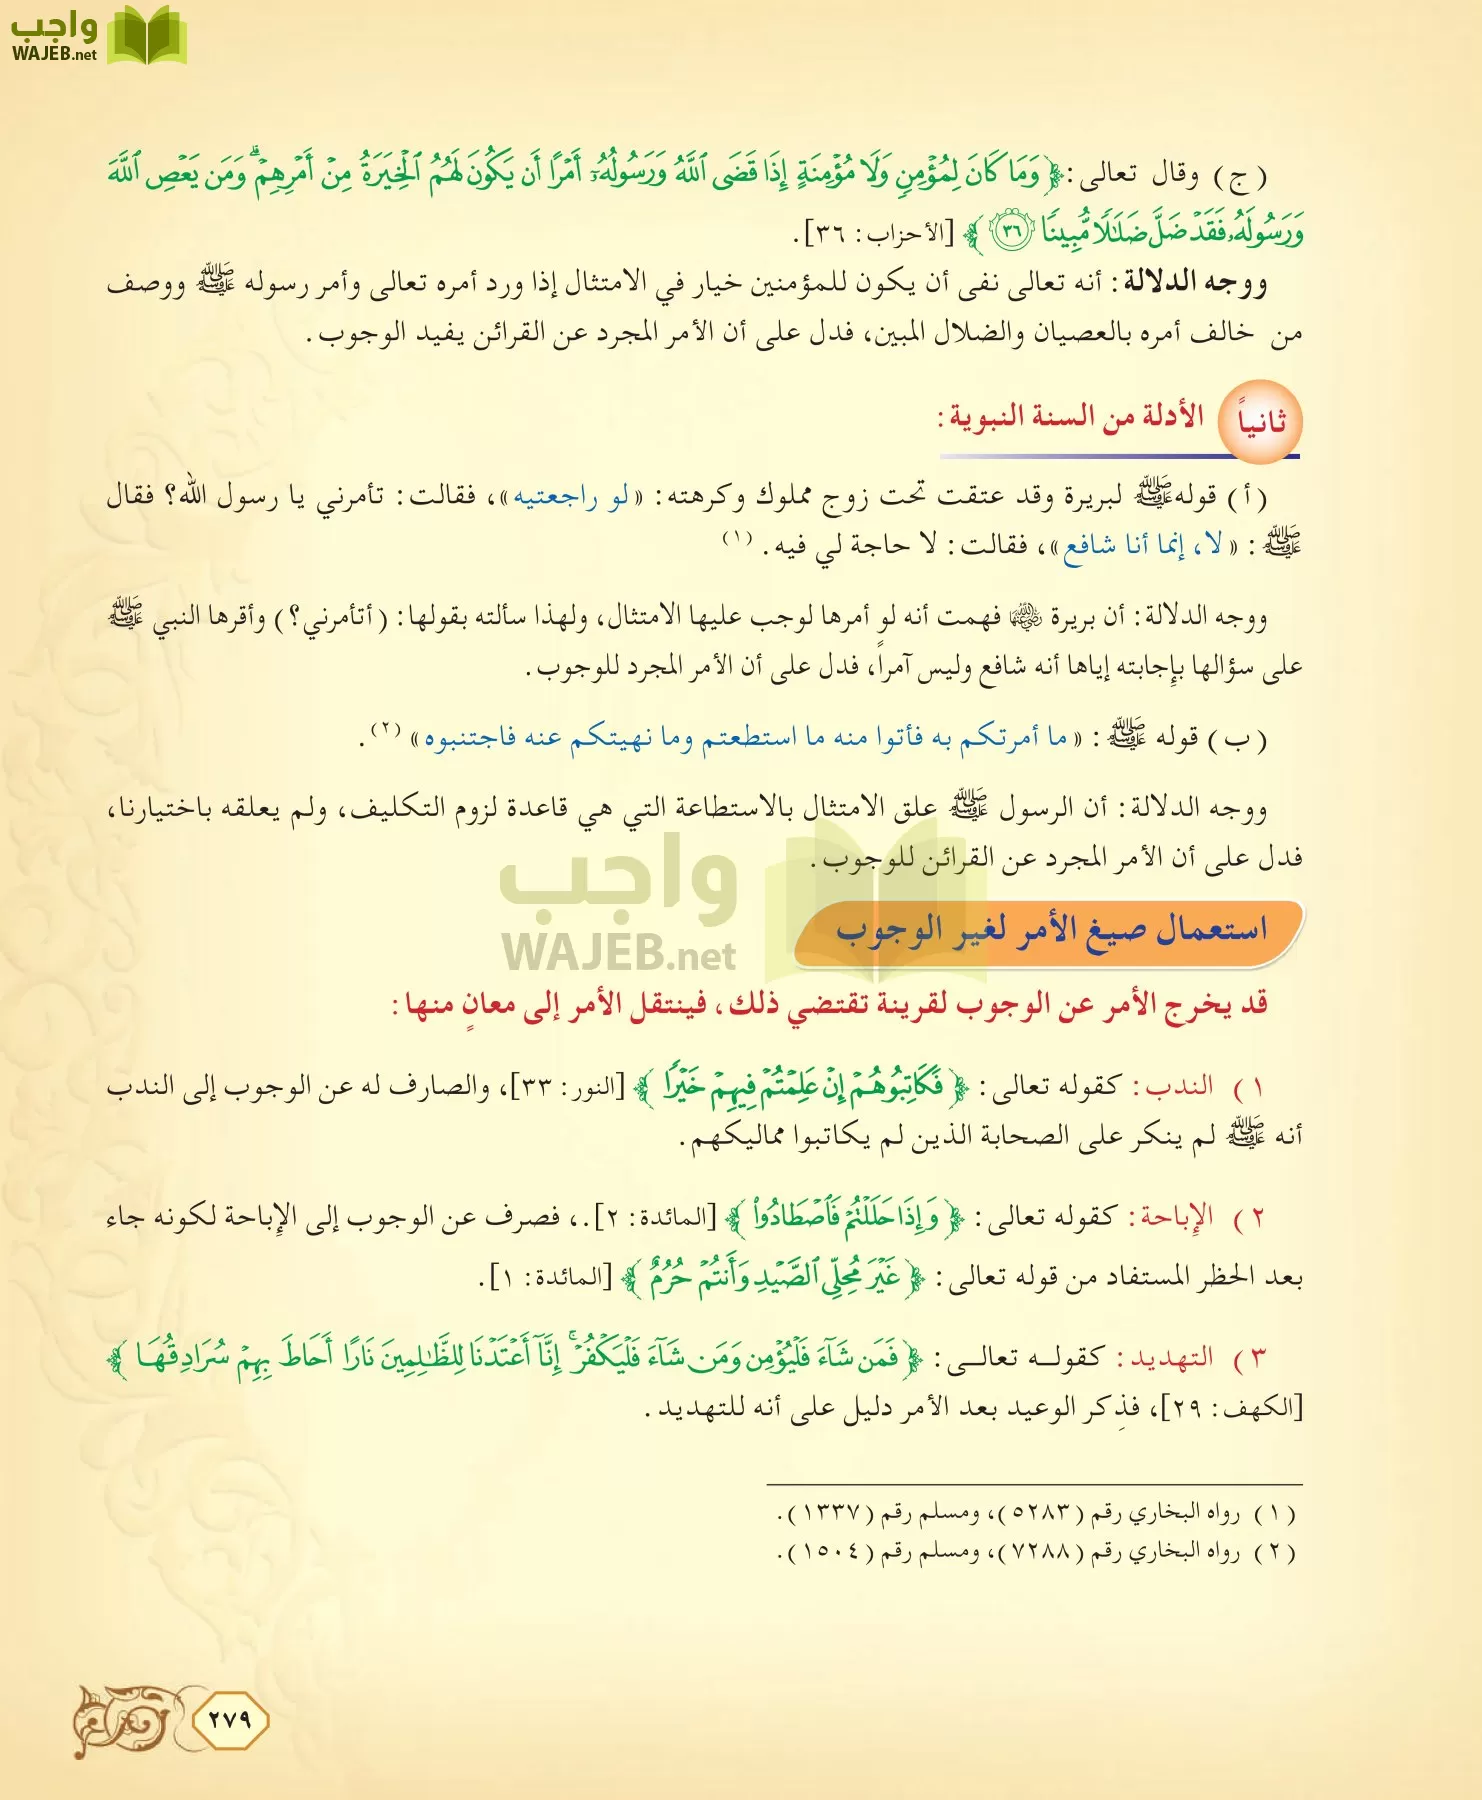 واجب
WAJEB.net
(ج) وقال تعالى: ﴿وَمَا كَانَ لِمُؤْمِنٍ وَلَا مُؤْمِنَةٍ إِذَا قَضَى ٱللَّهُ وَرَسُولُهُۥٓ أَمْرًا أَن يَكُونَ لَهُمُ ٱلْخِيَرَةُ مِنْ أَمْرِهِمْ ۗ وَمَن يَعْصِ ٱللَّهَ
وَرَسُولَهُۥ فَقَدْ ضَلَّ ضَلَٰلًا مُّبِينًا ٣٦﴾ [الأحزاب: ٣٦].
ووجه الدلالة: أنه تعالى نفى أن يكون للمؤمنين خيار في الامتثال إذا ورد أمره تعالى وأمر رسوله ﷺ ووصف
من خالف أمره بالعصيان والضلال المبين، فدل على أن الأمر المجرد عن القرائن يفيد الوجوب.
ثانياً الأدلة من السنة النبوية:
(أ) قوله ﷺ لبريرة وقد عتقت تحت زوج مملوك وكرهته: «لو راجعتيه»، فقالت: تأمرني يا رسول الله؟ فقال
ﷺ: «لا، إنما أنا شافع»، فقالت: لا حاجة لي فيه. (١)
ووجه الدلالة: أن بريرة رضي الله عنها فهمت أنه لو أمرها لوجب عليها الامتثال، ولهذا سألته بقولها: (أتأمرني؟) وأقرها النبي ﷺ
على سؤالها بإجابته إياها أنه شافع وليس آمراً، فدل على أن الأمر المجرد للوجوب.
(ب) قوله ﷺ: «ما أمرتكم به فأتوا منه ما استطعتم وما نهيتكم عنه فاجتنبوه» (٢).
ووجه الدلالة: أن الرسول ﷺ علق الامتثال بالاستطاعة التي هي قاعدة لزوم التكليف، ولم يعلقه باختيارنا،
فدل على أن الأمر المجرد عن القرائن للوجوب.
واجب
WAJEB.net
استعمال صيغ الأمر لغير الوجوب
قد يخرج الأمر عن الوجوب لقرينة تقتضي ذلك، فينتقل الأمر إلى معانٍ منها:
١) الندب: كقوله تعالى: ﴿فَكَاتِبُوهُمْ إِنْ عَلِمْتُمْ فِيهِمْ خَيْرًا﴾ [النور: ٣٣]، والصارف له عن الوجوب إلى الندب
أنه ﷺ لم ينكر على الصحابة الذين لم يكاتبوا مماليكهم.
٢) الإباحة: كقوله تعالى: ﴿وَإِذَا حَلَلْتُمْ فَٱصْطَادُوا۟﴾ [المائدة: ٢].، فصرف عن الوجوب إلى الإباحة لكونه جاء
بعد الحظر المستفاد من قوله تعالى: ﴿غَيْرَ مُحِلِّى ٱلصَّيْدِ وَأَنتُمْ حُرُمٌ﴾ [المائدة: ١].
٣) التهديد: كقوله تعالى: ﴿فَمَن شَآءَ فَلْيُؤْمِن وَمَن شَآءَ فَلْيَكْفُرْ ۚ إِنَّآ أَعْتَدْنَا لِلظَّٰلِمِينَ نَارًا أَحَاطَ بِهِمْ سُرَادِقُهَا﴾
[الكهف: ٢٩]، فذِكر الوعيد بعد الأمر دليل على أنه للتهديد.
(١) رواه البخاري رقم (٥٢٨٣)، ومسلم رقم (١٣٣٧).
(٢) رواه البخاري رقم (٧٢٨٨)، ومسلم رقم (١٥٠٤).
٢٧٩